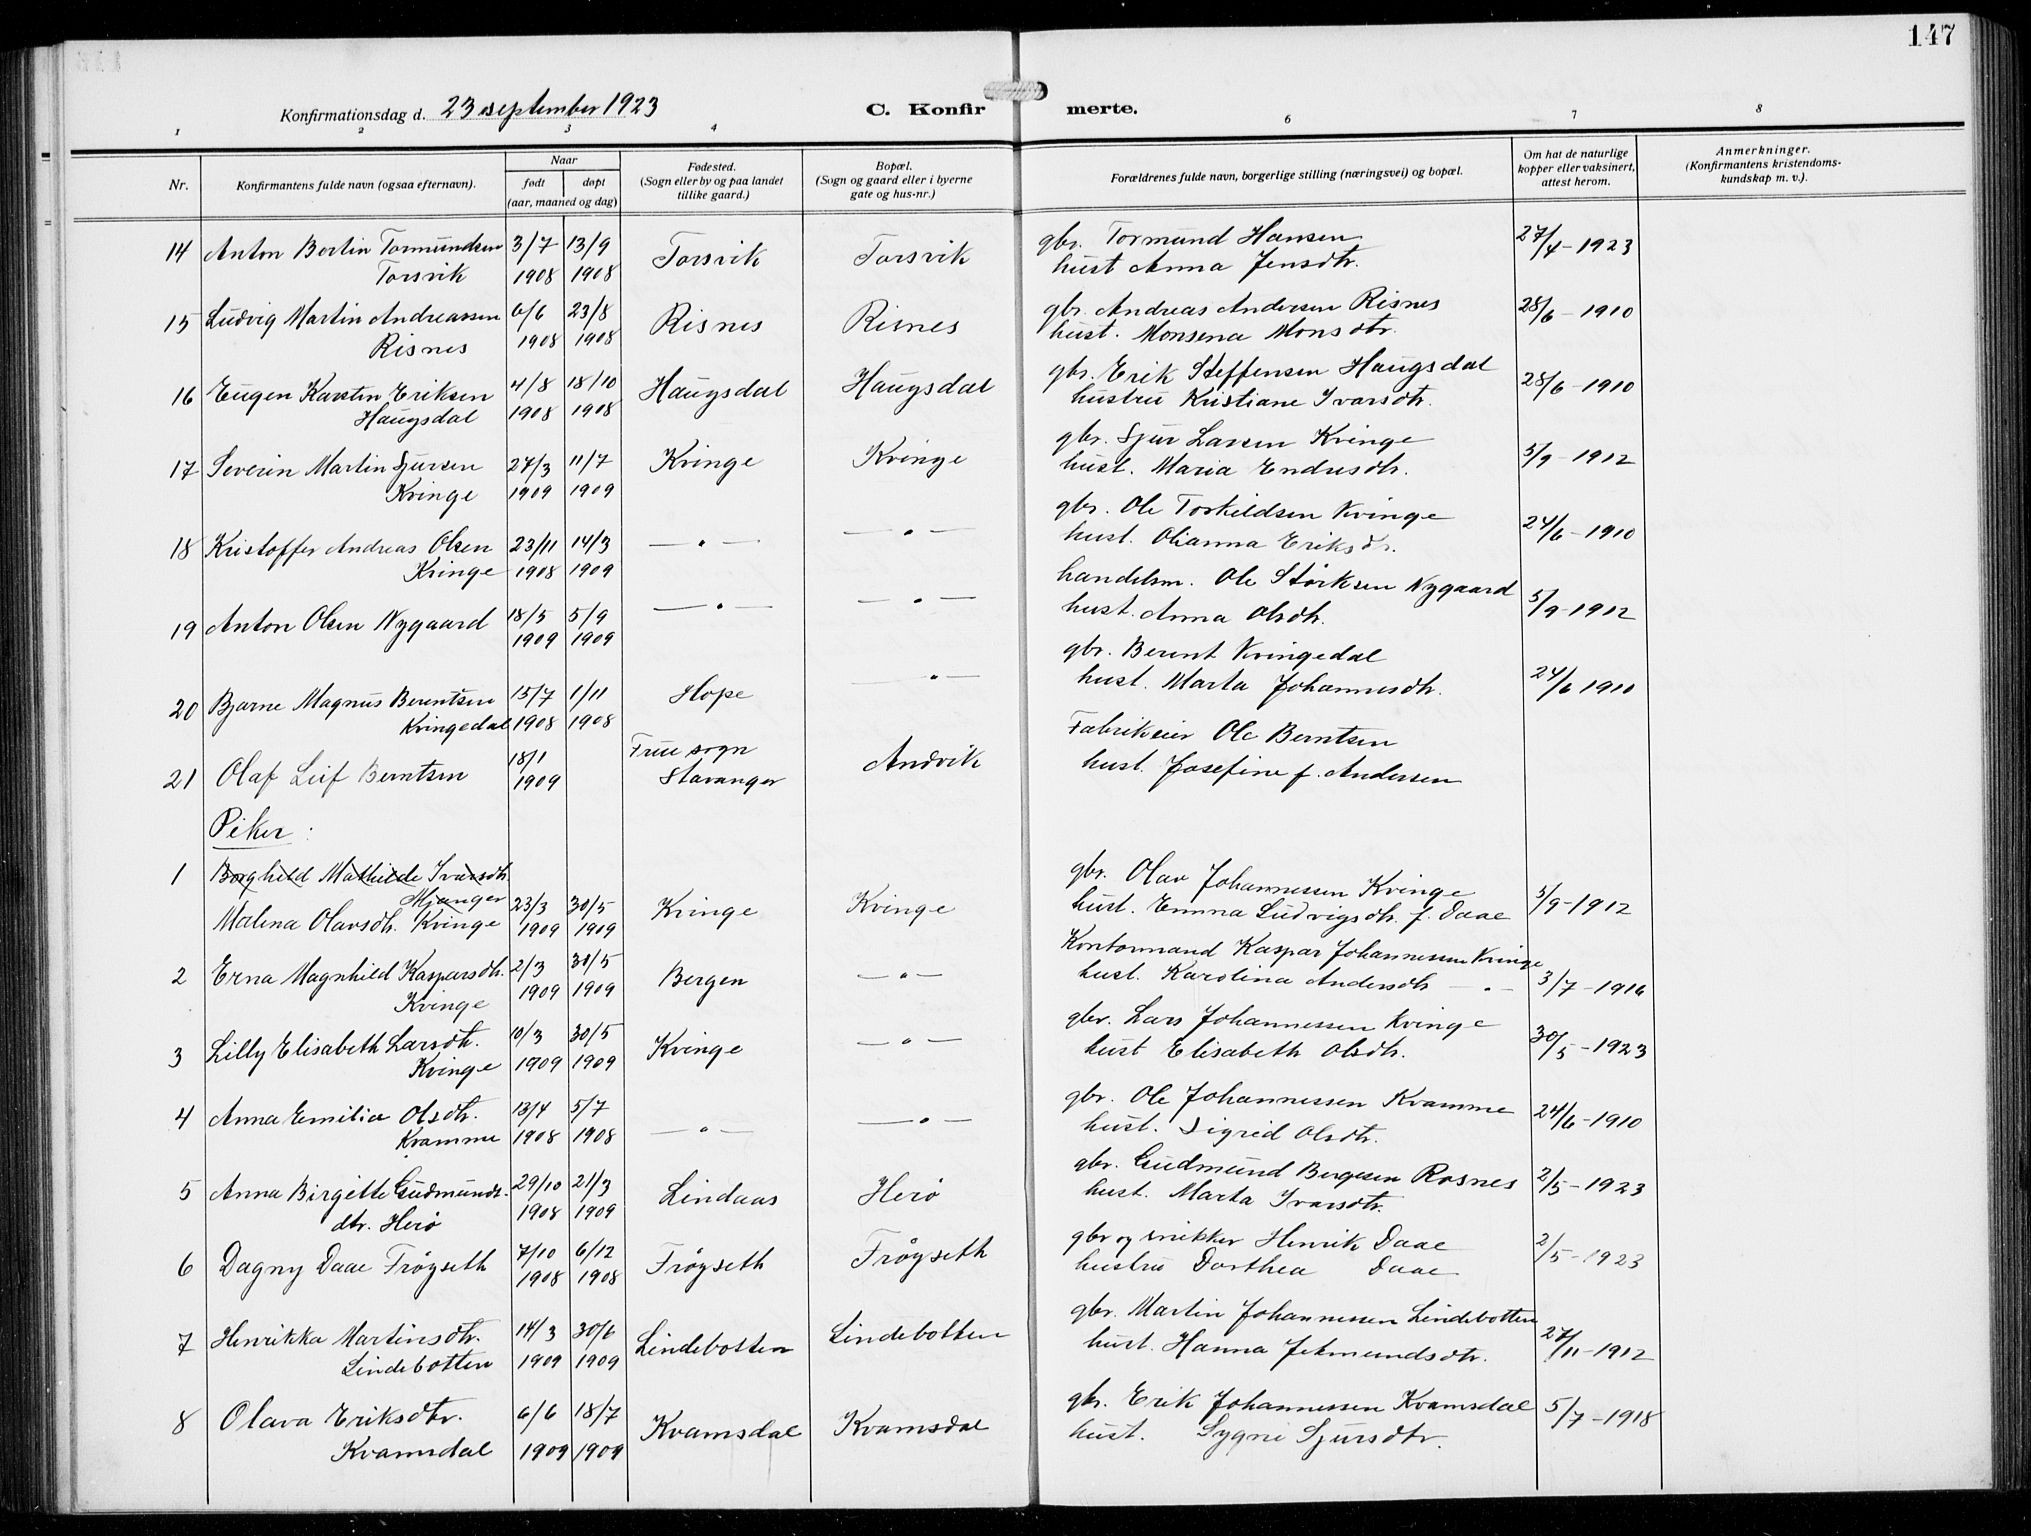 147
Konfirmationsdag d. 23 september 1923 C. Konfir merte.
1 2 3 4 6 7 8
Nr. Konfirmantens fulde navn (ogsaa efternavn). Naar født døpt (aar, maaned og dag) Fødested. (Sogn eller by og paa landet tillike gaard.) Bopæl. (Sogn og gaard eller i byerne gate og hus-nr.) Forældrenes fulde navn, borgerlige stilling (næringsvei) og bopæl. Om hat de naturlige kopper eller vaksinert, attest herom. Anmerkninger. (Konfirmantens kristendoms-kundskap m. v.).
14 Anton Bertin Tormundsen 3/7 13/9 Torsvik Torsvik gbr. Tormund Hansen 27/4 - 1923
Torsvik 1908 1908 hust Anna Jensdtr.
15 Ludvig Martin Andreassen 6/6 23/8 Risnes Risnes gbr. Andreas Andersen Risnes 28/6 - 1910
Risnes 1908 1908 hust. Monsena Monsdtr.
16 Eugen Karsten Eriksen 4/8 18/10 Haugsdal Haugsdal gbr. Erik Steffensen Haugsdal 28/6 - 1910
Haugsdal 1908 1908 hustru Kristiane Ivarsdtr.
17 Severin Martin Sjursen 27/3 11/7 Kvinge Kvinge gbr. Sjur Larsen Kvinge 5/9 - 1912
Kvinge 1909 1909 hust. Maria Endresdtr.
18 Kristoffer Andreas Olsen 23/11 14/3 — " — — " — gbr. Ole Torkildsen Kvinge 24/6 - 1910
Kvinge 1908 1909 hust. Olianna Eriksdtr.
19 Anton Olsen Nygaard 18/5 5/9 — " — — " — handelsm. Ole Størksen Nygaard 5/9 - 1912
1909 1909 hust. Anna Olsdtr.
20 Bjarne Magnus Berentsen 15/7 1/11 Hope — " — gbr. Berent Kvingedal 24/6 1910
Kvingedal 1908 1908 hust. Marta Johannesdtr.
21 Olaf Leif Berntsen 18/1 Frue sogn Andvik Fabrikeier Ole Berntsen
1909 Stavanger hust. Josefine f. Andersen
Piker:
1 Borghild Mathilde Ivarsdtr.
Mjanger
Malena Olavsdtr. Kvinge 23/3 30/5 Kvinge Kvinge gbr. Olav Johannessen Kvinge 5/9 - 1912
1909 1909 hust. Emma Ludvigsdtr. f. Daae
2 Erna Magnhild Kasparsdtr. 2/3 30/5 Bergen — " — Kontormand Kaspar Johannessen Kvinge
Kvinge 1909 1909 hust. Karolina Andersdtr — " — 3/7 - 1916
3 Lilly Elisabeth Larsdtr. 10/3 30/5 Kvinge — " — gbr. Lars Johannessen Kvinge 30/5 - 1923
Kvinge 1909 1909 hust Elisabeth Olsdtr.
4 Anna Emilie Olsdtr. 13/4 5/7 — " — — " — gbr. Ole Johannessen Kvamme 24/6 - 1910
Kvamme 1908 1908 hust. Sigrid Olsdtr.
5 Anna Birgitte Gudmunds- 29/10 21/3 Lindaas Herø gbr. Gudmund Bergesen Rosnes 2/5 - 1923
dtr. Herø 1908 1909 hust. Marta Ivarsdtr.
6 Dagny Daae Frøyseth 7/10 6/12 Frøyseth Frøyseth gbr og snikker Henrik Daae 2/5 - 1923
1908 1908 hustru Dorthea Daae
7 Henrikka Martinsdtr. 14/3 30/6 Lindebotten Lindebotten gbr. Martin Johannessen Lindebotten 27/11 - 1912
Lindebotten 1909 1909 hust. Hanna Jetmundsdtr.
8 Olava Eriksdtr. 6/6 18/7 Kvamsdal Kvamsdal gbr. Erik Johannessen Kvamsdal 5/7 - 1918
Kvamsdal 1909 1909 hust. Sygni Sjursdtr.